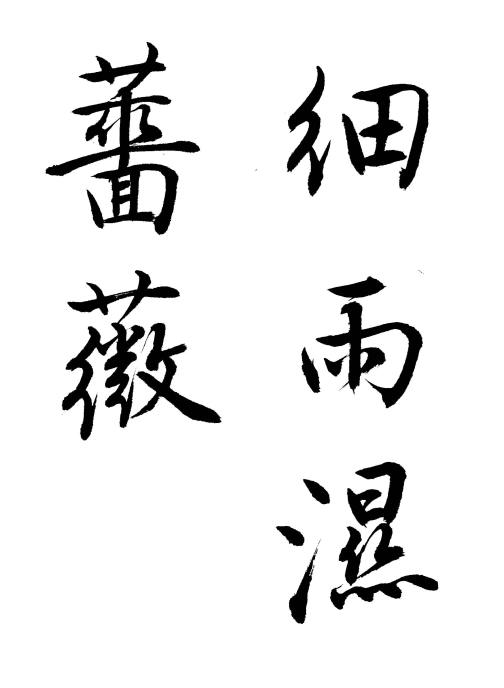 細雨濕
薔薇